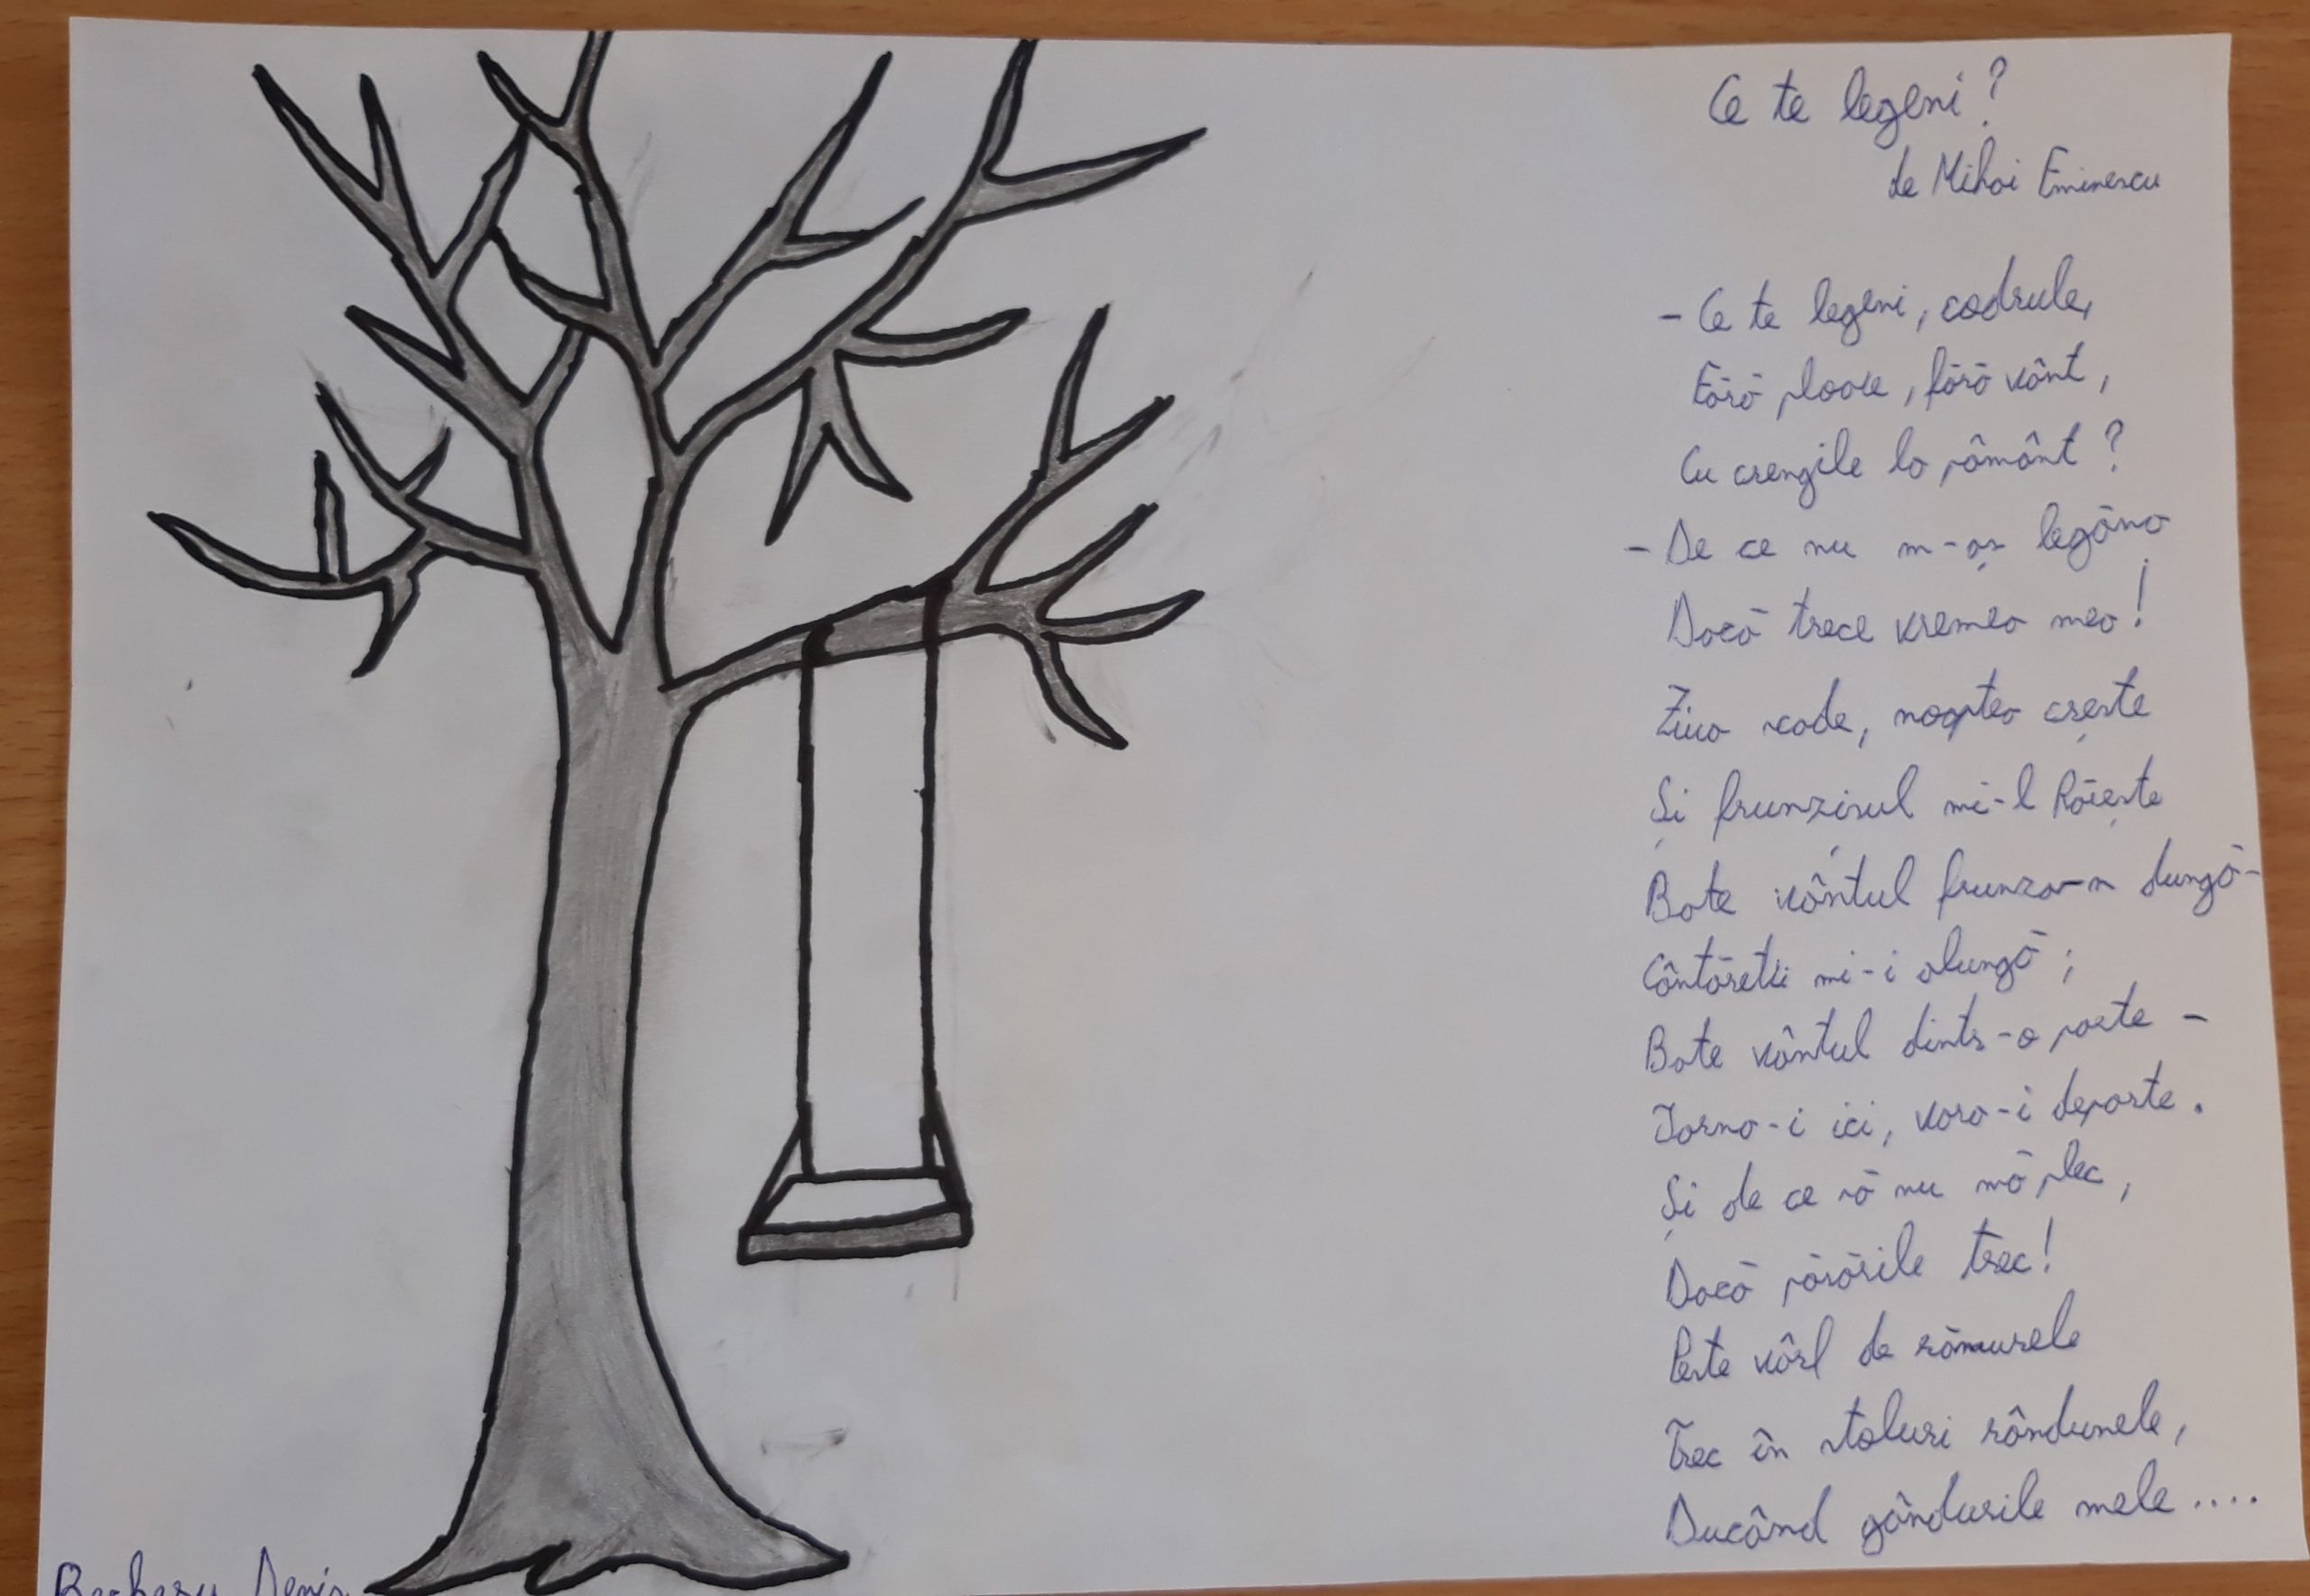 Ce te legeni?
de Mihai Eminescu
- Ce te legeni, codrule,
Fără ploaie, fără vânt,
Cu crengile la pământ?
- De ce nu m-aș legăna
Dacă trece vremea mea!
Ziua scade, noaptea crește
Și frunzișul mi-l răiește
Bate vântul frunza-n dungă-
Cântăreții mi-i alungă;
Bate vântul dintr-o parte -
Iarna-i ici, vara-i departe.
Și de ce să nu mă plec,
Dacă păsările trec!
Peste vârf de rămurele
Trec în stoluri rândunele,
Ducând gândurile mele....
Denis